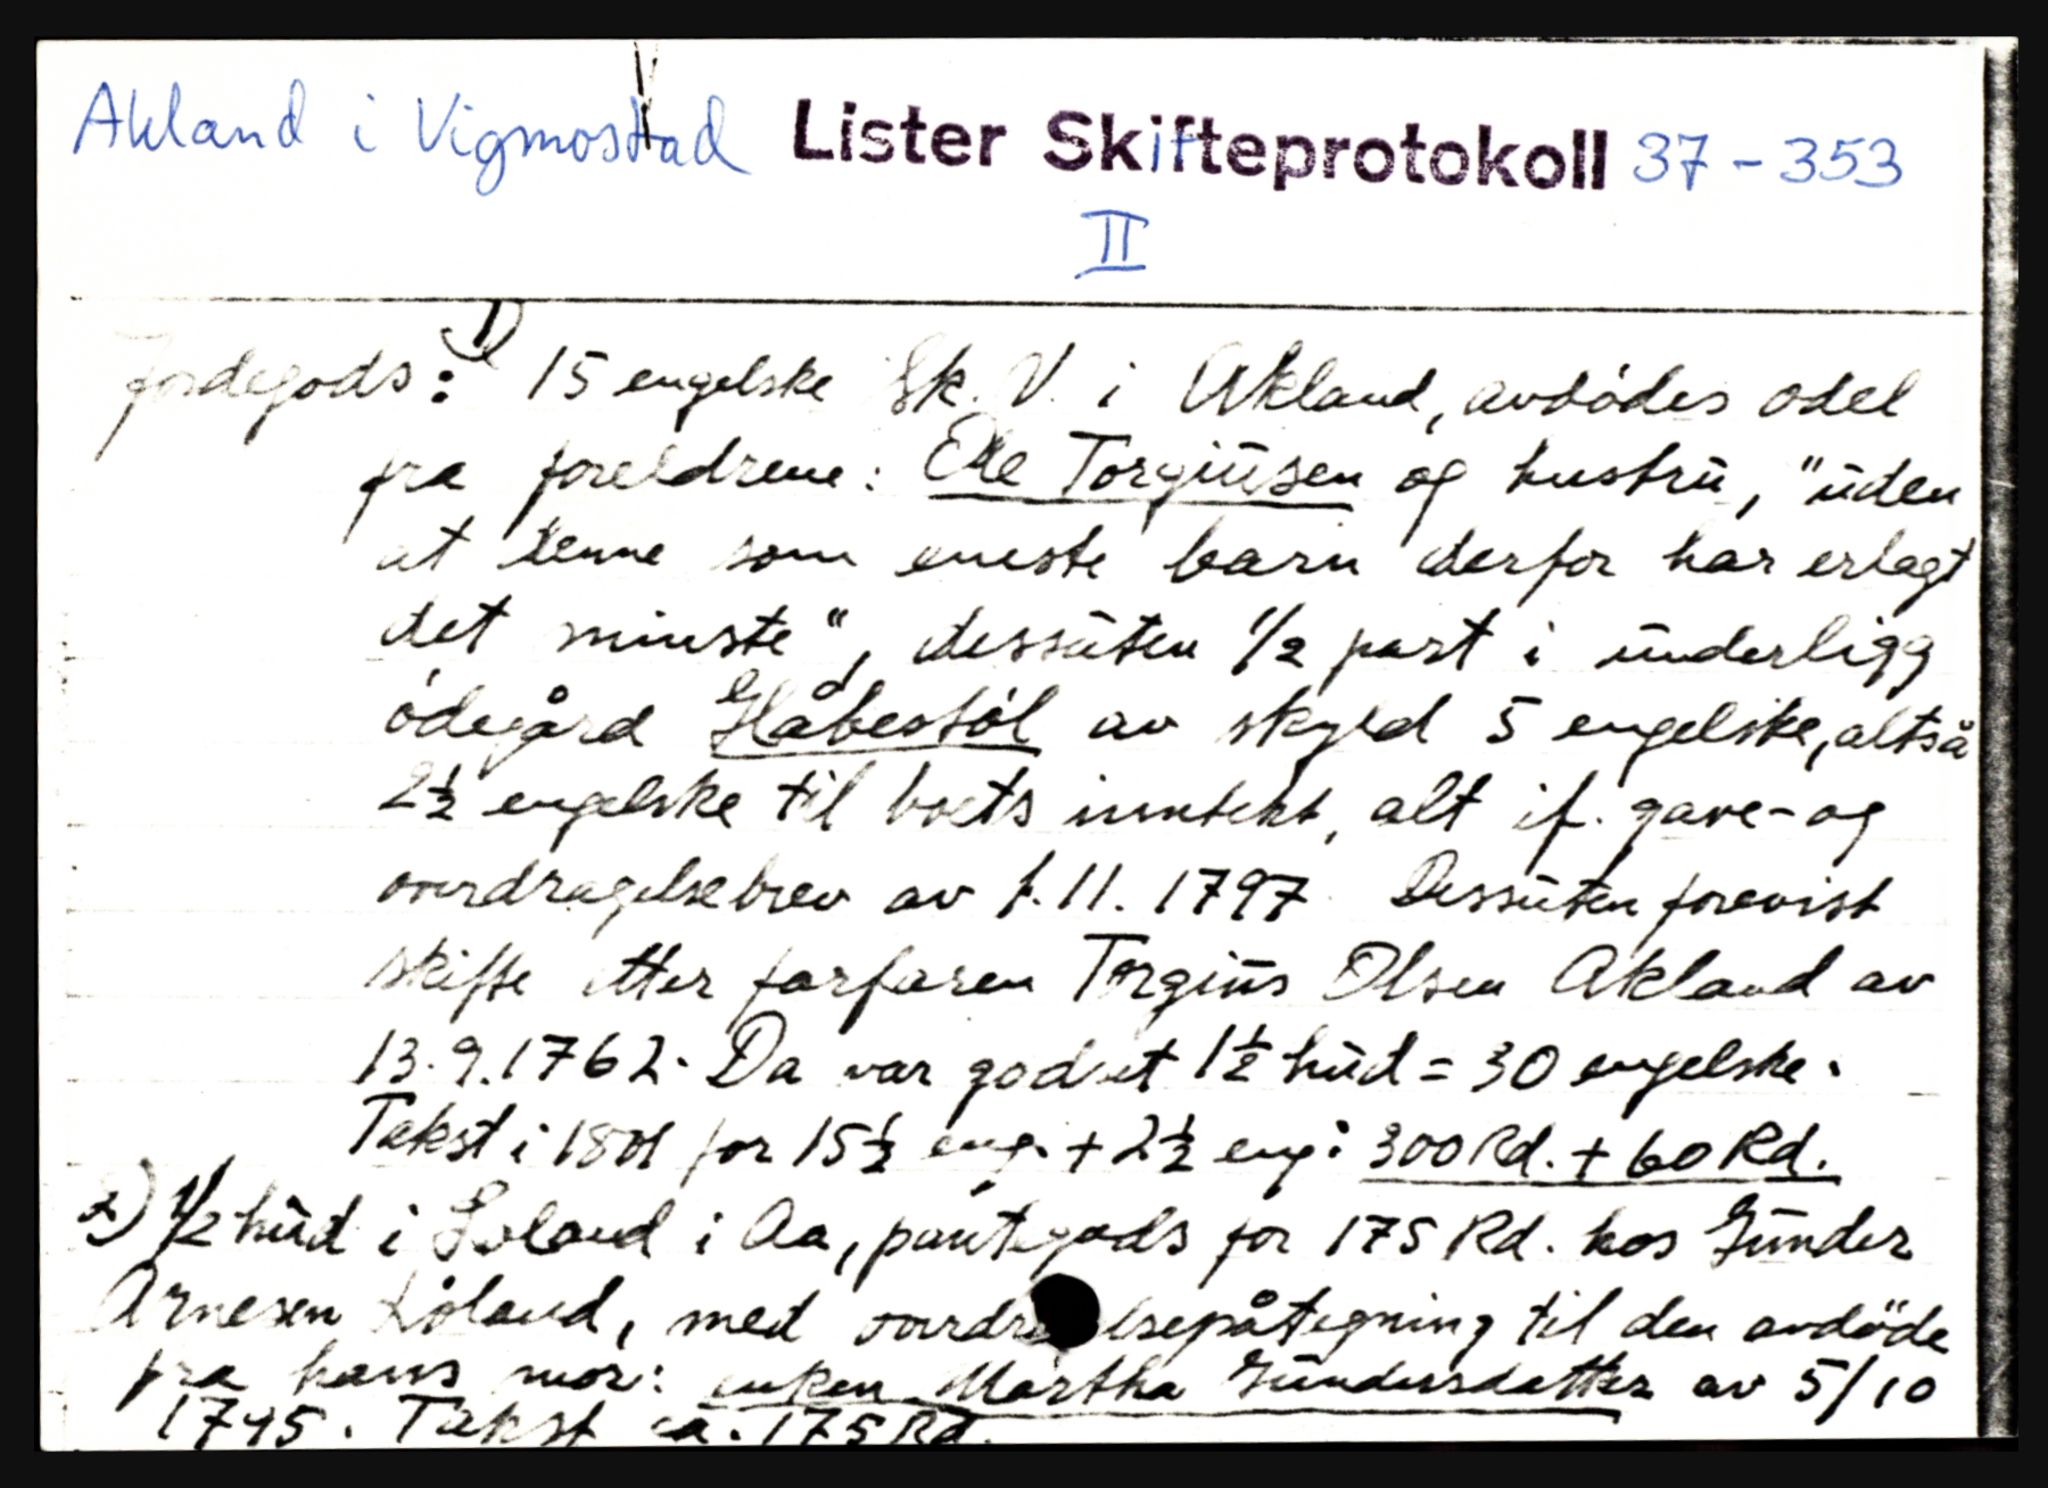 Akland i Vigmostad Lister Skifteprotokoll 37-353
II
Jordegods: 1) 15 engelske Sk. V. i Akland, avdødes odel
fra foreldrene: Ole Torgiusen og hustru, "uden
at denne som eneste barn derfor har erlagt
det minste", dessuten 1/2 part i underligg
ødegård av skyld 5 engelske, altså
2½ engelske til boets inntekt, alt if. gave- og
overdragelsebrev av 1.11.1797 Dessuten forevist
skifte etter farfaren Torgius Olsen Akland av
13.9.1762. Da var godset 1½ hud = 30 engelske.
Takst i 1801 for 15½ eng. + 2½ eng: 300 Rd. + 60 Rd.
2) 1/2 hud i Loland i Aa, pantegods for 175 Rd. hos Gunder
Arnesen Loland, med overdr lsepåtegning til den avdöde
fra hans mor: enken Martha Gundersdatter av 5/10
1795. Takst a. 175 Rd.